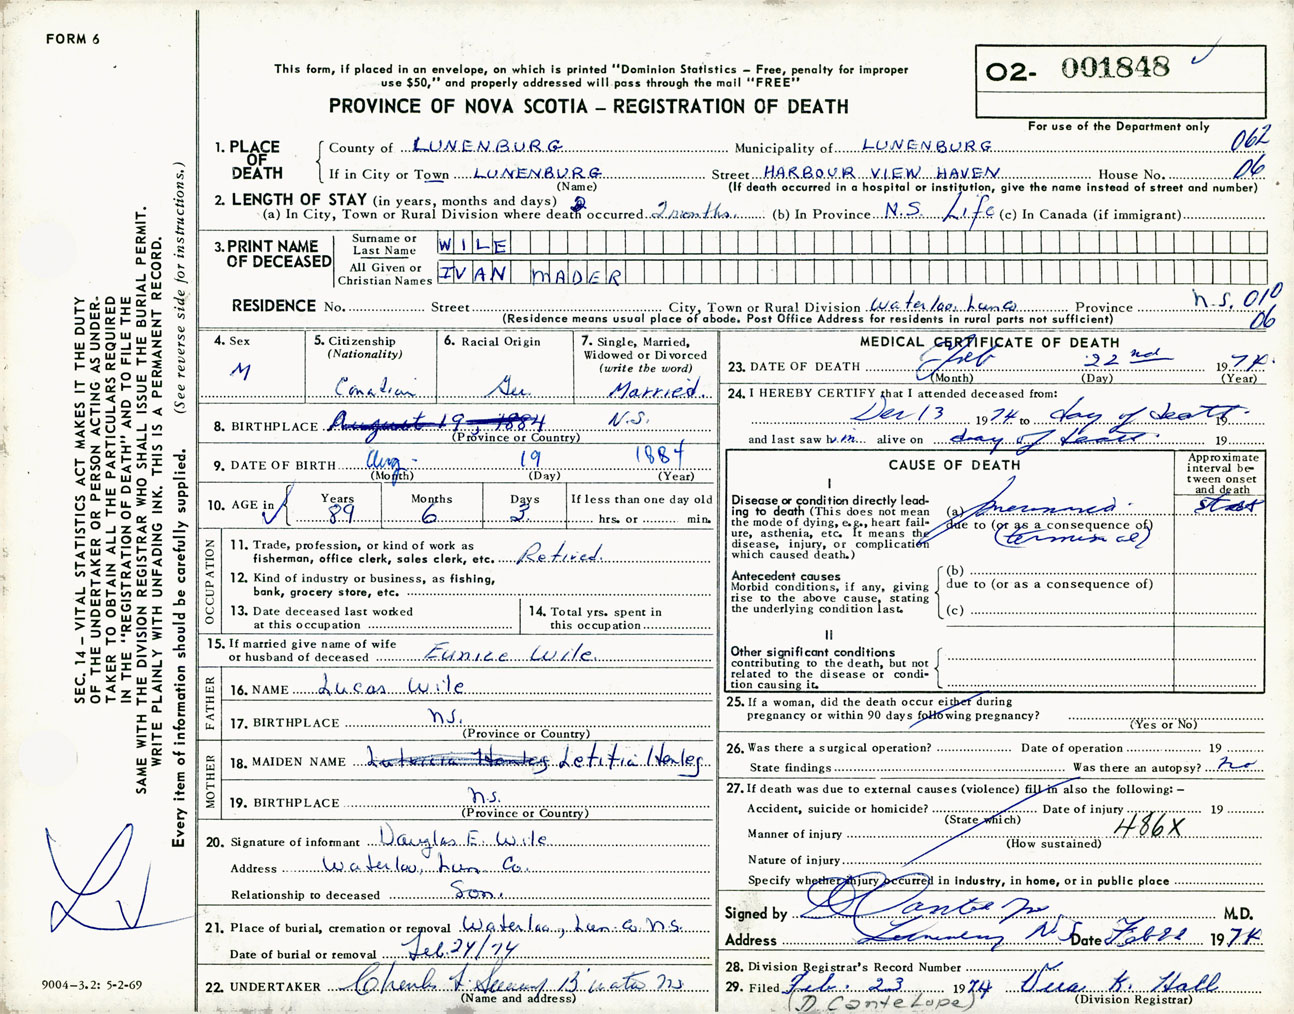 FORM 6
This form, if placed in an envelope, on which is printed "Dominion Statistics – Free, penalty for improper
use $50," and properly addressed will pass through the mail "FREE"
PROVINCE OF NOVA SCOTIA – REGISTRATION OF DEATH
O2- 001848
For use of the Department only
1. PLACE OF DEATH
County of LUNENBURG Municipality of LUNENBURG 062
If in City or Town LUNENBURG Street HARBOUR VIEW HAVEN House No. 06
(Name) (If death occurred in a hospital or institution, give the name instead of street and number)
2. LENGTH OF STAY (in years, months and days)
(a) In City, Town or Rural Division where death occurred 2 months (b) In Province N.S. Life (c) In Canada (if immigrant)
3. PRINT NAME OF DECEASED
Surname or Last Name WILE
All Given or Christian Names IVAN MADER
RESIDENCE No. Street City, Town or Rural Division Waterloo, Lun Co Province N.S. 010
(Residence means usual place of abode. Post Office Address for residents in rural parts not sufficient) 06
4. Sex M
5. Citizenship (Nationality) Canadian
6. Racial Origin Ger.
7. Single, Married, Widowed or Divorced (write the word) Married.
8. BIRTHPLACE August 19, 1884 N.S.
(Province or Country)
9. DATE OF BIRTH Aug. 19 1884
(Month) (Day) (Year)
10. AGE in Years 89 Months 6 Days 3 If less than one day old hrs. or min.
OCCUPATION
11. Trade, profession, or kind of work as
fisherman, office clerk, sales clerk, etc. Retired.
12. Kind of industry or business, as fishing,
bank, grocery store, etc.
13. Date deceased last worked
at this occupation
14. Total yrs. spent in
this occupation
15. If married give name of wife
or husband of deceased Eunice Wile.
FATHER
16. NAME Lucas Wile
17. BIRTHPLACE N.S.
(Province or Country)
MOTHER
18. MAIDEN NAME Letitia Henley
19. BIRTHPLACE N.S.
(Province or Country)
20. Signature of informant Douglas E. Wile
Address Waterloo, Lun. Co.
Relationship to deceased Son.
21. Place of burial, cremation or removal Waterloo, Lun. Co. N.S.
Date of burial or removal Feb. 24/74
22. UNDERTAKER Charles B'water NS
(Name and address)
MEDICAL CERTIFICATE OF DEATH
23. DATE OF DEATH Feb 22nd 1974
(Month) (Day) (Year)
24. I HEREBY CERTIFY that I attended deceased from:
Dec 13 1974 to day of death 19
and last saw him alive on day of death 19
CAUSE OF DEATH
Approximate interval between onset and death
I
Disease or condition directly leading to death (This does not mean the mode of dying, e.g., heart failure, asthenia, etc. It means the disease, injury, or complication which caused death.)
(a) pneumonia
due to (or as a consequence of)
(terminal)
Antecedent causes
Morbid conditions, if any, giving rise to the above cause, stating the underlying condition last.
(b)
due to (or as a consequence of)
(c)
II
Other significant conditions
contributing to the death, but not related to the disease or condition causing it.
25. If a woman, did the death occur either during
pregnancy or within 90 days following pregnancy?
(Yes or No)
26. Was there a surgical operation? Date of operation 19
State findings Was there an autopsy? no
27. If death was due to external causes (violence) fill in also the following: –
Accident, suicide or homicide? Date of injury 19
(State which)
Manner of injury 486X
(How sustained)
Nature of injury
Specify whether injury occurred in industry, in home, or in public place
Signed by D Cantelope M.D.
Address Lunenburg N S Date Feb 22 1974
28. Division Registrar's Record Number
29. Filed Feb. 23 1974 Vera K. Hall
(D Cantelope) (Division Registrar)
SEC. 14 – VITAL STATISTICS ACT MAKES IT THE DUTY
OF THE UNDERTAKER OR PERSON ACTING AS UNDER-
TAKER TO OBTAIN ALL THE PARTICULARS REQUIRED
IN THE "REGISTRATION OF DEATH" AND TO FILE THE
SAME WITH THE DIVISION REGISTRAR WHO SHALL ISSUE THE BURIAL PERMIT.
WRITE PLAINLY WITH UNFADING INK. THIS IS A PERMANENT RECORD.
Every item of information should be carefully supplied. (See reverse side for instructions.)
9004-3.2: 5-2-69